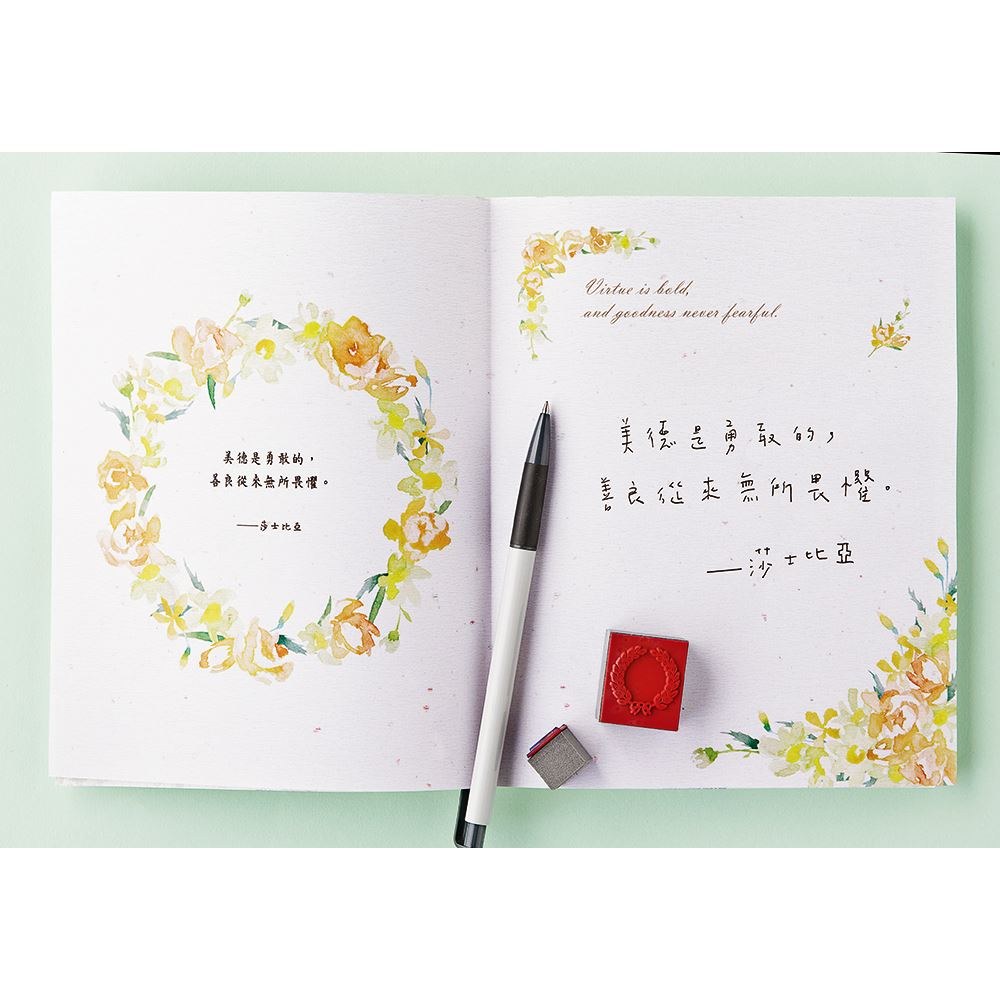 美德是勇敢的，
善良從來無所畏懼。
——莎士比亞
Virtue is bold,
and goodness never fearful.
美德是勇敢的，
善良從來無所畏懼。
—莎士比亞